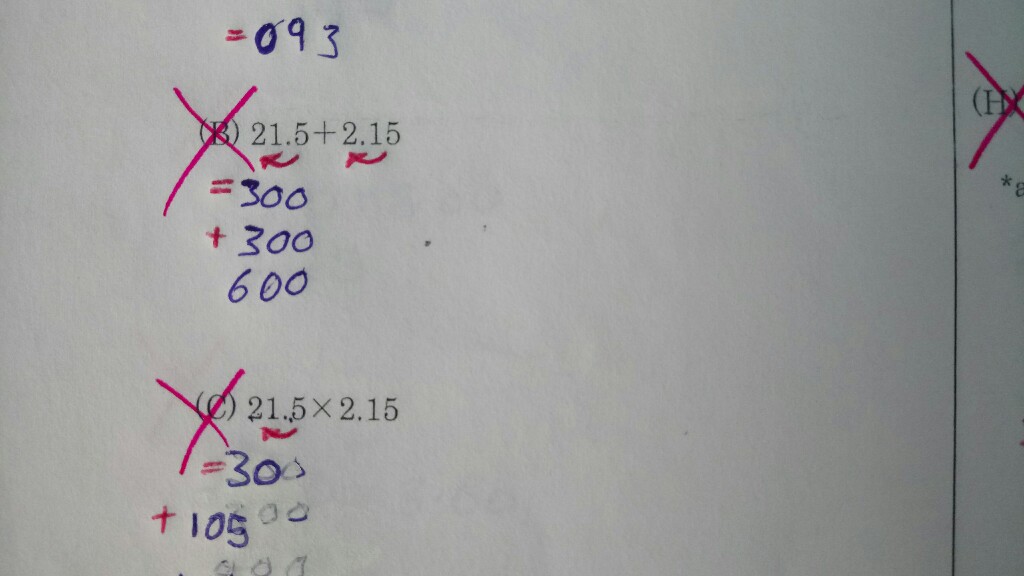 = 093
(B) 21.5+2.15
= 300
+ 300
600
(C) 21.5×2.15
= 300
+ 105
(H)
*a